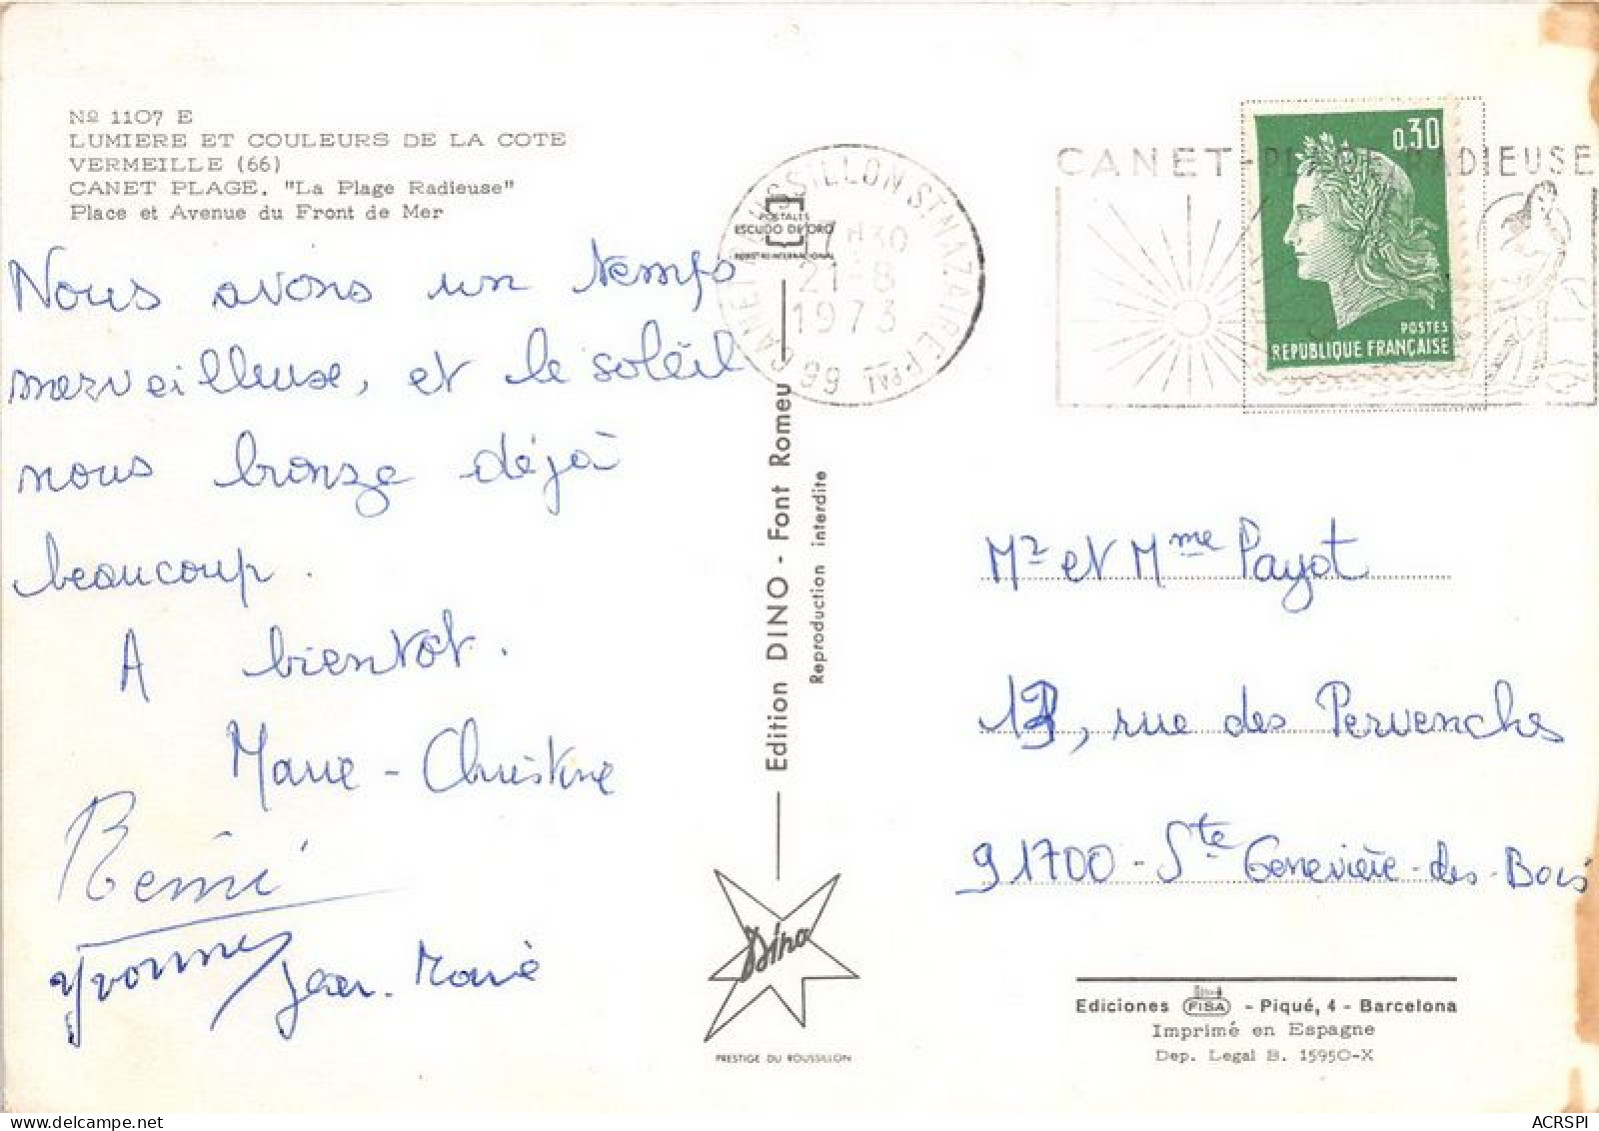 Nº 1107 E
LUMIERE ET COULEURS DE LA COTE
VERMEILLE (66)
CANET PLAGE. "La Plage Radieuse"
Place et Avenue du Front de Mer
Nous avons un temps
merveilleuse, et le soleil
nous bronze déjà
beaucoup.
A bientot.
Marie-Christine
Rémi
Yvonne
Jean-Marie
POSTALES
ESCUDO DE ORO
17H30
21-8
1973
66
CANET-PLAGE RADIEUSE
0,30
POSTES
REPUBLIQUE FRANÇAISE
Edition DINO - Font Romeu
Reproduction interdite
Dino
PRESTIGE DU ROUSSILLON
Mr et Mme Payot
13, rue des Pervenches
91700 - Ste Geneviève-des-Bois
Ediciones FISA - Piqué, 4 - Barcelona
Imprimé en Espagne
Dep. Legal B. 15950-X
ACRSPI